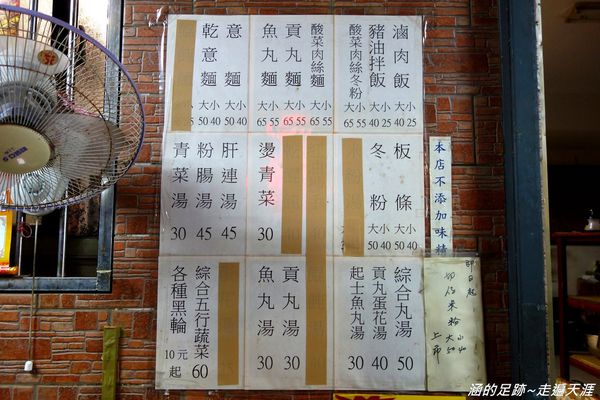 滷肉飯 大小 40 25
豬油拌飯 大小 40 25
酸菜肉絲冬粉 大小 65 55
酸菜肉絲麵 大小 65 55
貢丸麵 大小 65 55
魚丸麵 大小 65 55
意麵 大小 50 40
乾意麵 大小 50 40
板條 大小 50 40
冬粉 大小 50 40
燙青菜 30
肝連湯 45
粉腸湯 45
青菜湯 30
綜合丸湯 50
貢丸蛋花湯 40
起士魚丸湯 30
貢丸湯 30
魚丸湯 30
綜合五行蔬菜 60
各種黑輪 10元起
本店不添加味精
即日起
上市
涵的足跡~走遍天涯